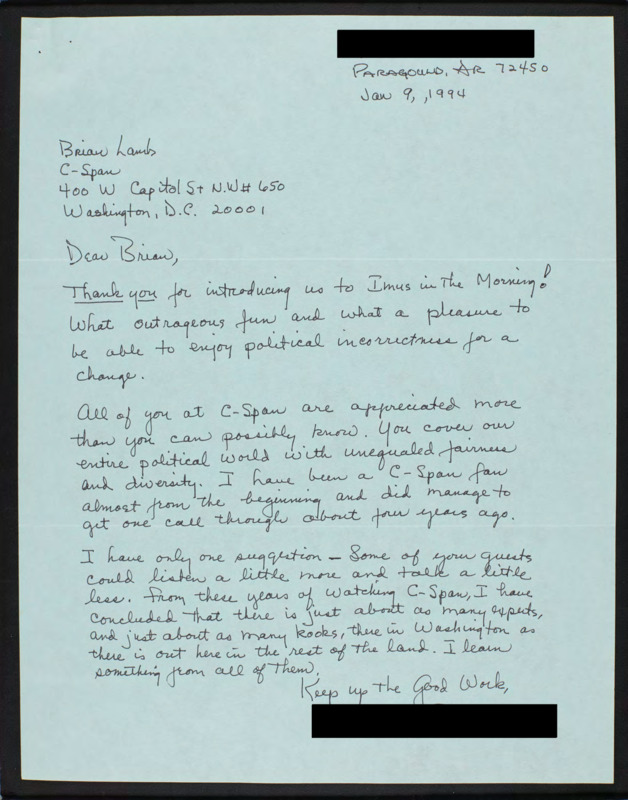 Paragould, AR 72450
Jan 9, ,1994
Brian Lamb
C-Span
400 W Capitol St N.W# 650
Washington, D.C. 20001
Dear Brian,
Thank you for introducing us to Imus in The Morning!
What outrageous fun and what a pleasure to
be able to enjoy political incorrectness for a
change.
All of you at C-Span are appreciated more
than you can possibly know. You cover our
entire political world with unequaled fairness
and diversity. I have been a C-Span fan
almost from the beginning and did manage to
get one call through about four years ago.
I have only one suggestion – Some of your guests
could listen a little more and talk a little
less. From these years of watching C-Span, I have
concluded that there is just about as many experts,
and just about as many kooks, there in Washington as
there is out here in the rest of the land. I learn
something from all of them.
Keep up the Good Work,